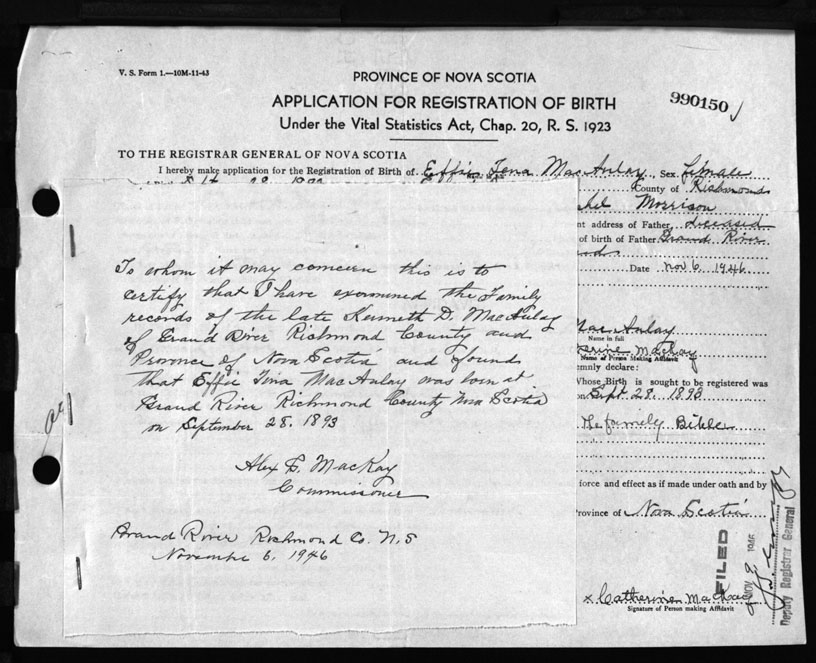 V. S. Form 1.—10M-11-43
PROVINCE OF NOVA SCOTIA
990150
APPLICATION FOR REGISTRATION OF BIRTH
Under the Vital Statistics Act, Chap. 20, R. S. 1923
TO THE REGISTRAR GENERAL OF NOVA SCOTIA
I hereby make application for the Registration of Birth of Effie Tena MacAulay, Sex Female
County of Richmond
Morrison
nt address of Father, deceased
of birth of Father Grand River
Date Nov 6 1946
To whom it may concern this is to
certify that I have examined the Family
records of the late Kenneth D. MacAulay
of Grand River Richmond County and
Province of Nova Scotia and found
that Effie Tina MacAulay was born at
Grand River Richmond County Nova Scotia
on September 28. 1893
Alex F. MacKay
Commissioner
Grand River Richmond Co. N.S
November 6. 1946
MacAulay
Name in full
erine MacKay
Name of Person Making Affidavit
mnly declare:
Whose Birth is sought to be registered was
on Sept. 28. 1893
the family Bible
force and effect as if made under oath and by
Province of Nova Scotia
x Catherine MacKay
Signature of Person making Affidavit
FILED
NOV 9 1946
Deputy Registrar General